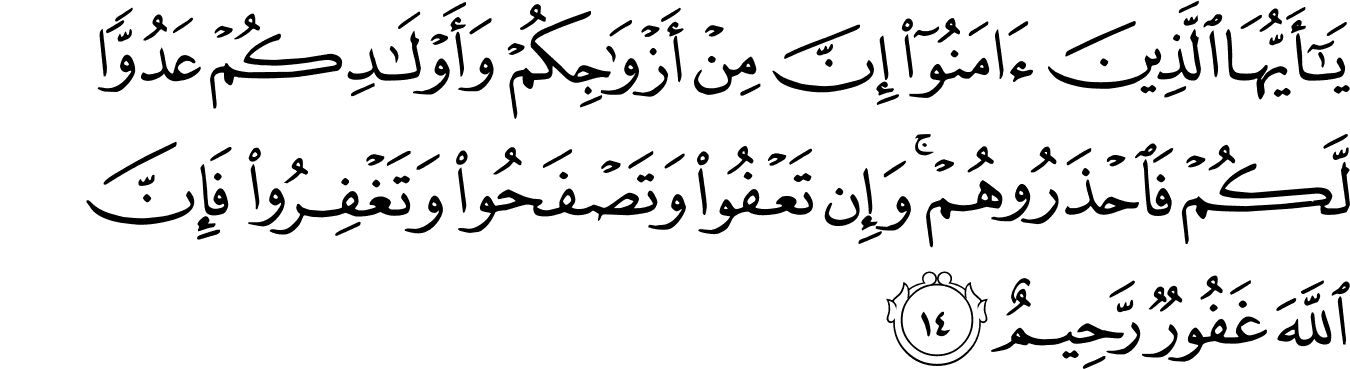 يَـٰٓأَيُّهَا ٱلَّذِينَ ءَامَنُوٓا۟ إِنَّ مِنْ أَزْوَٰجِكُمْ وَأَوْلَـٰدِكُمْ عَدُوًّا
لَّكُمْ فَٱحْذَرُوهُمْ ۚ وَإِن تَعْفُوا۟ وَتَصْفَحُوا۟ وَتَغْفِرُوا۟ فَإِنَّ
ٱللَّهَ غَفُورٌ رَّحِيمٌ ١٤